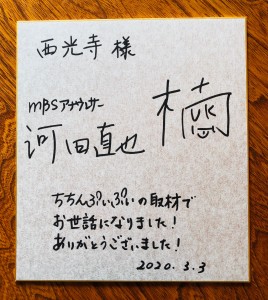 西光寺 様
MBSアナウンサー
河田直也
楠
ちちんぷいぷいの取材で
お世話になりました！
ありがとうございました！
2020. 3. 3